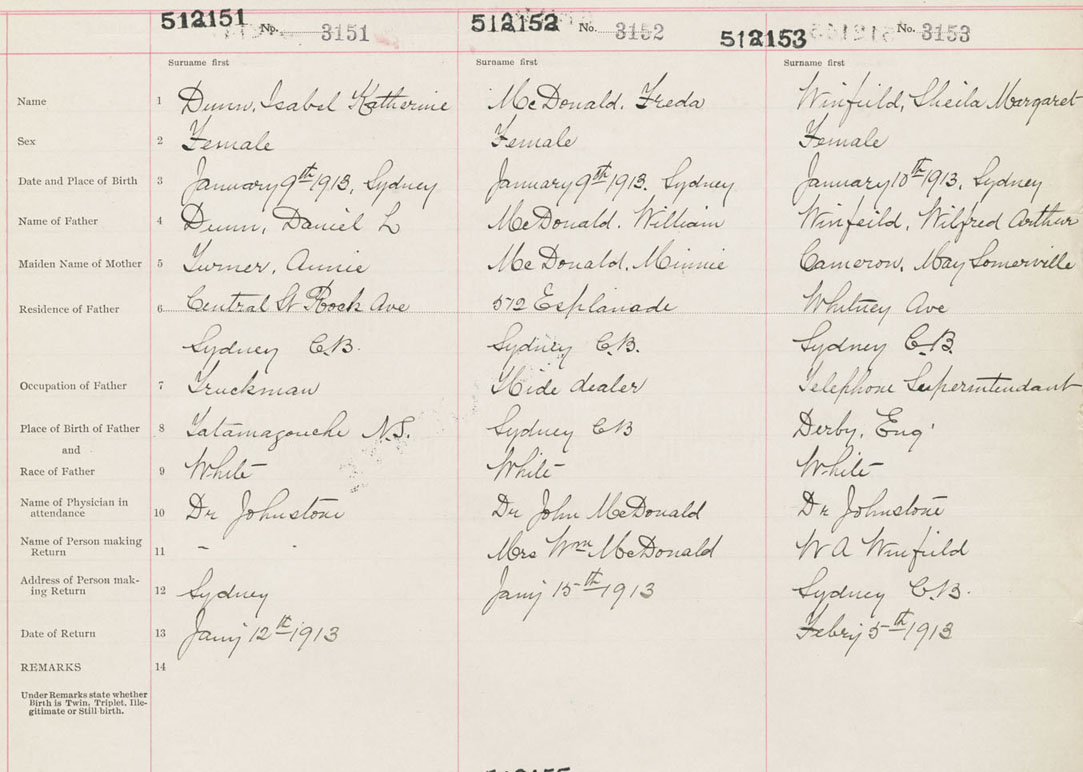 512151 No. 3151 512152 No. 3152 512153 No. 3153
Surname first Surname first Surname first
Name 1 Dunn, Isabel Katherine McDonald, Freda Winfield, Sheila Margaret
Sex 2 Female Female Female
Date and Place of Birth 3 January 9th 1913, Sydney January 9th 1913. Sydney January 10th 1913, Sydney
Name of Father 4 Dunn, Daniel L McDonald, William Winfeild, Wilfred Arthur
Maiden Name of Mother 5 Turner, Annie McDonald, Minnie Cameron, May Somerville
Residence of Father 6 Central St Ave 572 Esplanade Whitney Ave
Sydney C.B. Sydney C.B. Sydney C.B.
Occupation of Father 7 Truckman Hide dealer Telephone Superintendant
Place of Birth of Father 8 Tatamagouche N.S. Sydney CB Derby, Eng'
and
Race of Father 9 White White White
Name of Physician in
attendance 10 Dr Johnstone Dr John McDonald Dr Johnstone
Name of Person making
Return 11 - Mrs Wm McDonald W A Winfield
Address of Person mak-
ing Return 12 Sydney Jany 15th 1913 Sydney C.B.
Date of Return 13 Jany 12th 1913 Febry 5th 1913
REMARKS 14
Under Remarks state whether
Birth is Twin, Triplet, Ille-
gitimate or Still birth.